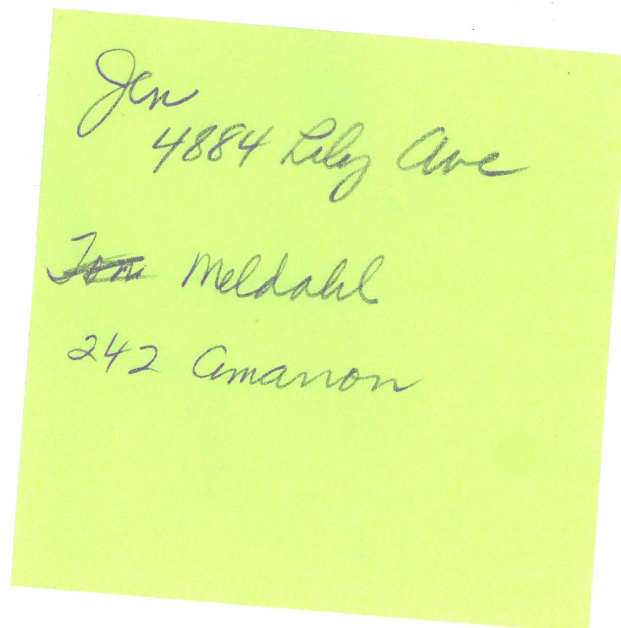 Jen
4884 Lily Ave
Tom Meldahl
242 Amarron